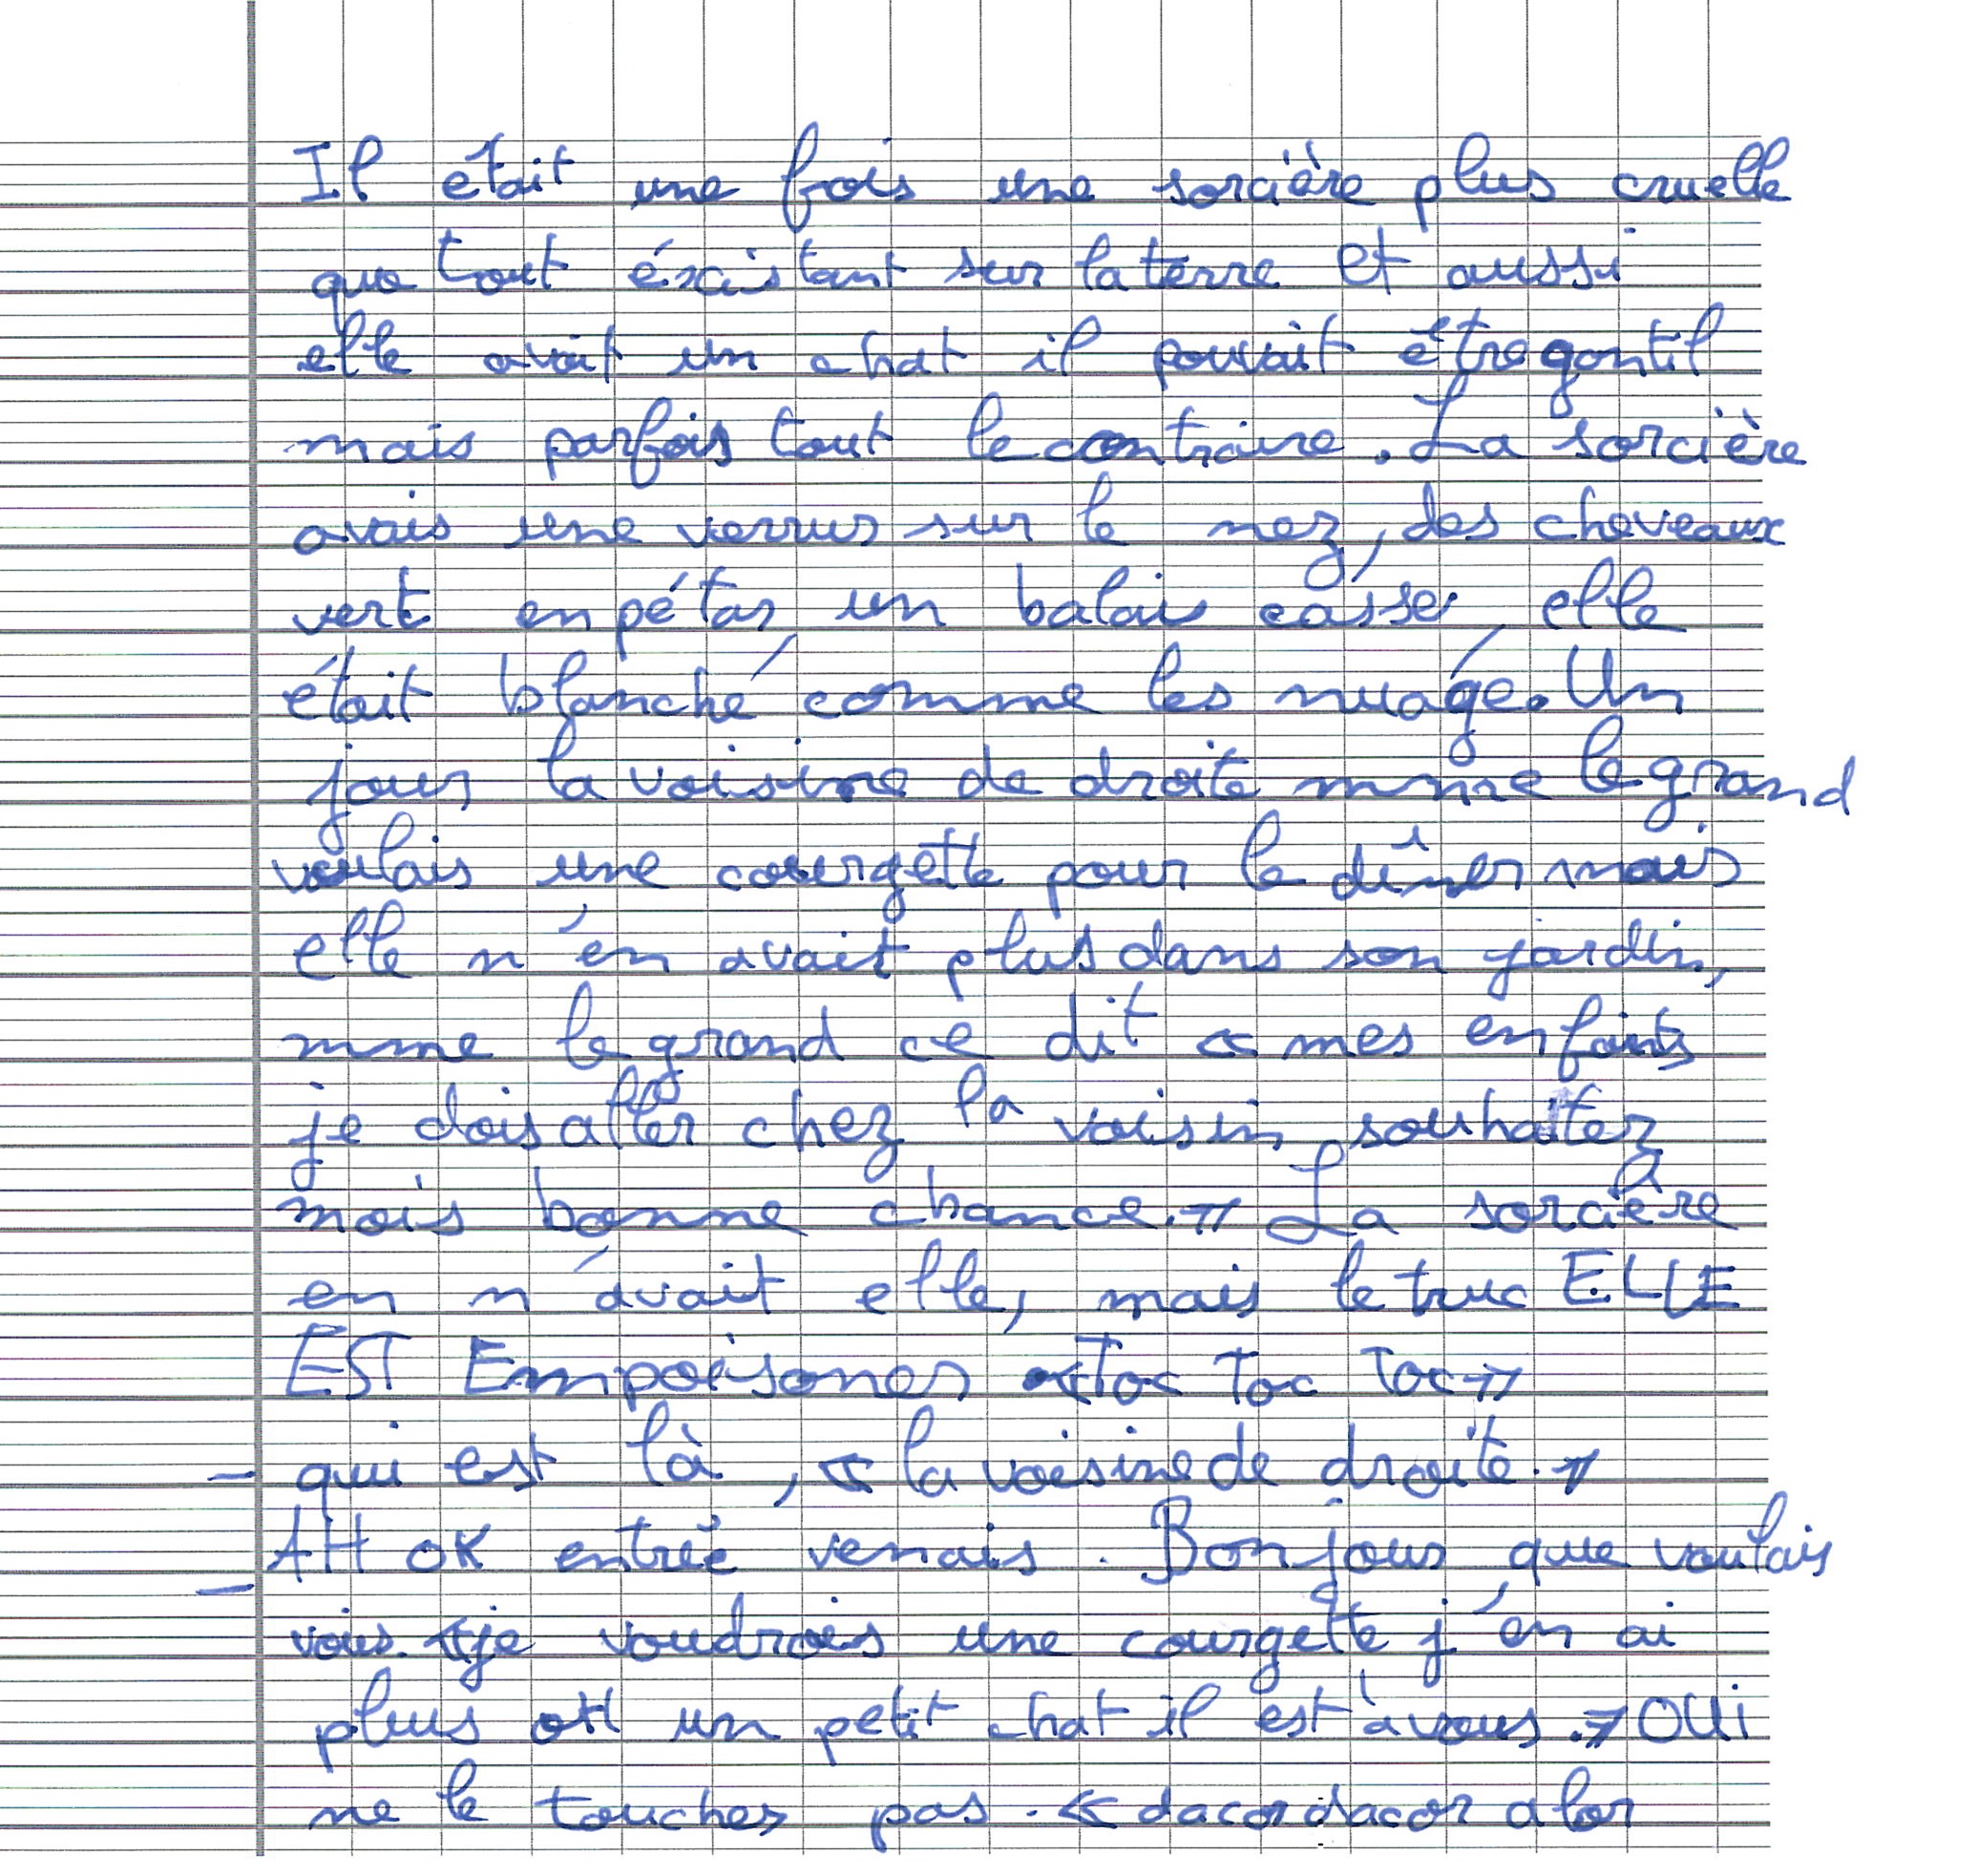 Il était une fois une sorcière plus cruelle
que tout éxcistant sur la terre et aussi
elle avait un chat il pouvait être gentil
mais parfois tout le contraire. La sorcière
avais une verrus sur le nez, des cheveaux
vert en pétar, un balais casse, elle
était blanche comme les nuage. Un
jour la voisine de droite mme legrand
voulais une courgette pour le dîner mais
elle n'en avait plus dans son jardin,
mme legrand ce dit « mes enfants
je dois aller chez la voisin souhaiter
mois bonne chance. » La sorcière
en n'avait elle, mais le truc ELLE
EST Empoisoner « Toc Toc Toc »
- qui est là, « la voisine de droite. »
- AH OK entrée venais. Bonjour que voulais
vous. « je voudrais une courgette j'en ai
plus oH un petit chat il est à vous. » OUi
ne le toucher pas. « dacor dacor alor